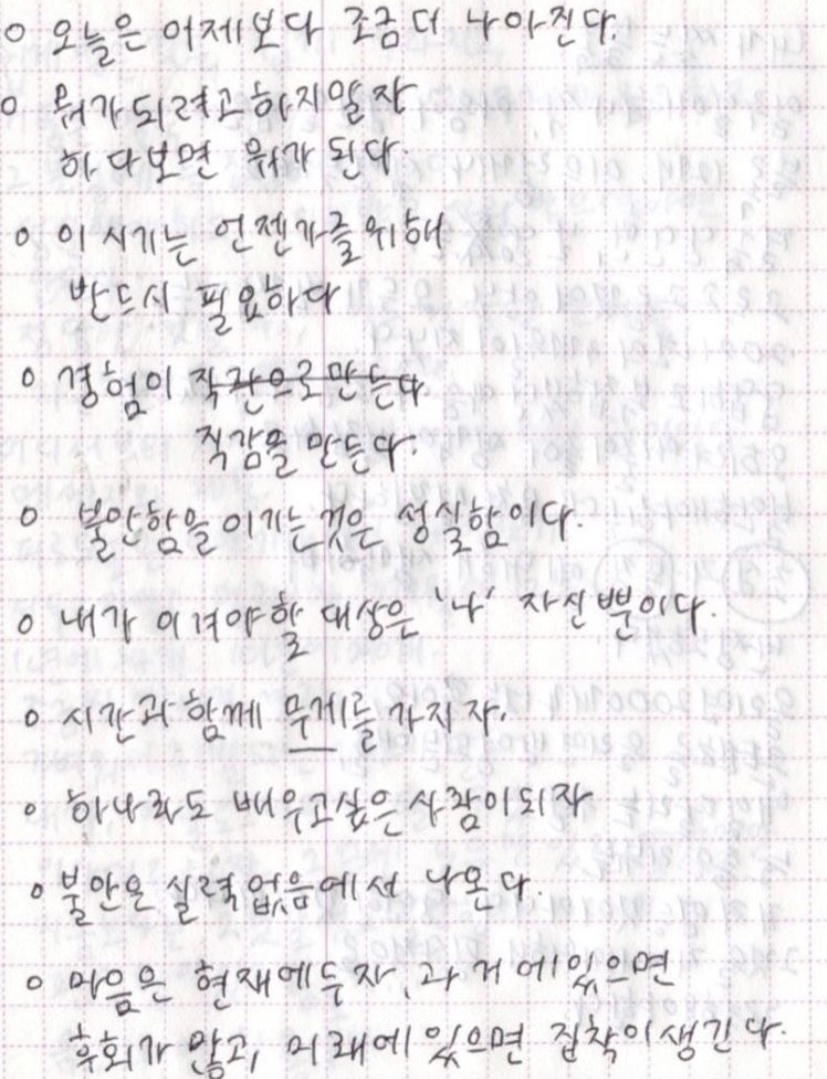 o 오늘은 어제보다 조금 더 나아진다.
o 뭐가 되려고 하지 말자
하다보면 뭐가 된다.
o 이 시기는 언젠가를 위해
반드시 필요하다
o 경험이 직관으로 만든다
직감을 만든다.
o 불안함을 이기는 것은 성실함이다.
o 내가 이겨야 할 대상은 '나' 자신 뿐이다.
o 시간과 함께 무게를 가지자.
o 하나라도 배우고 싶은 사람이 되자
o 불안은 실력 없음에서 나온다.
o 마음은 현재에 두자, 과거에 있으면
후회가 많고, 미래에 있으면 집착이 생긴다.